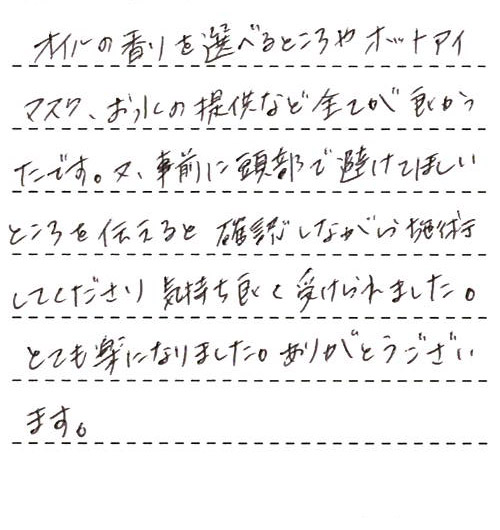 オイルの香りを選べるところやホットアイ
マスク、お水の提供など全てが良かっ
たです。又、事前に頭部で避けてほしい
ところを伝えると確認しながら施術
してくださり気持ち良く受けられました。
とても楽になりました。ありがとうござい
ます。